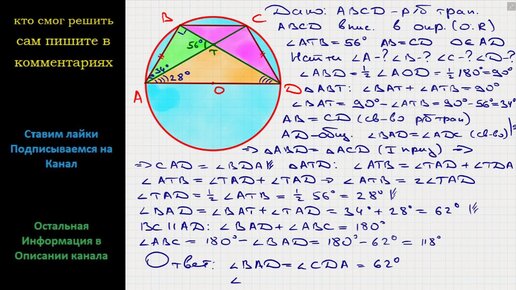 кто смог решить
сам пишите в
комментариях
Ставим лайки
Подписываемся на
Канал
Остальная
Информация в
Описании канала
B
C
56°
T
34°
28°
A
O
D
Дано: ABCD - р/б трап.
ABCD впис. в окр. (O.R)
∠ATB=56° AB=CD O∈AD
Найти ∠A-? ∠B-? ∠C-? ∠D-?
∠ABD=½∠AOD=½180°=90°
△ABT: ∠BAT+∠ATB=90°
∠BAT=90°-∠ATB=90°-56°=34°
AB=CD (св-во р/б трап)
AD-общ. ∠BAD=∠ADC (св-во)
⇒ △ABD=△ACD (I призн) ⇒
⇒ ∠CAD=∠BDA △ATD: ∠ATB=∠TAD+∠TDA
∠ATB=∠TAD+∠TAD ⇒ ∠ATB=2∠TAD
∠TAD=½∠ATB=½56°=28°
∠BAD=∠BAT+∠TAD=34°+28°=62°
BC||AD: ∠BAD+∠ABC=180°
∠ABC=180°-∠BAD=180°-62°=118°
Ответ: ∠BAD=∠CDA=62°
∠